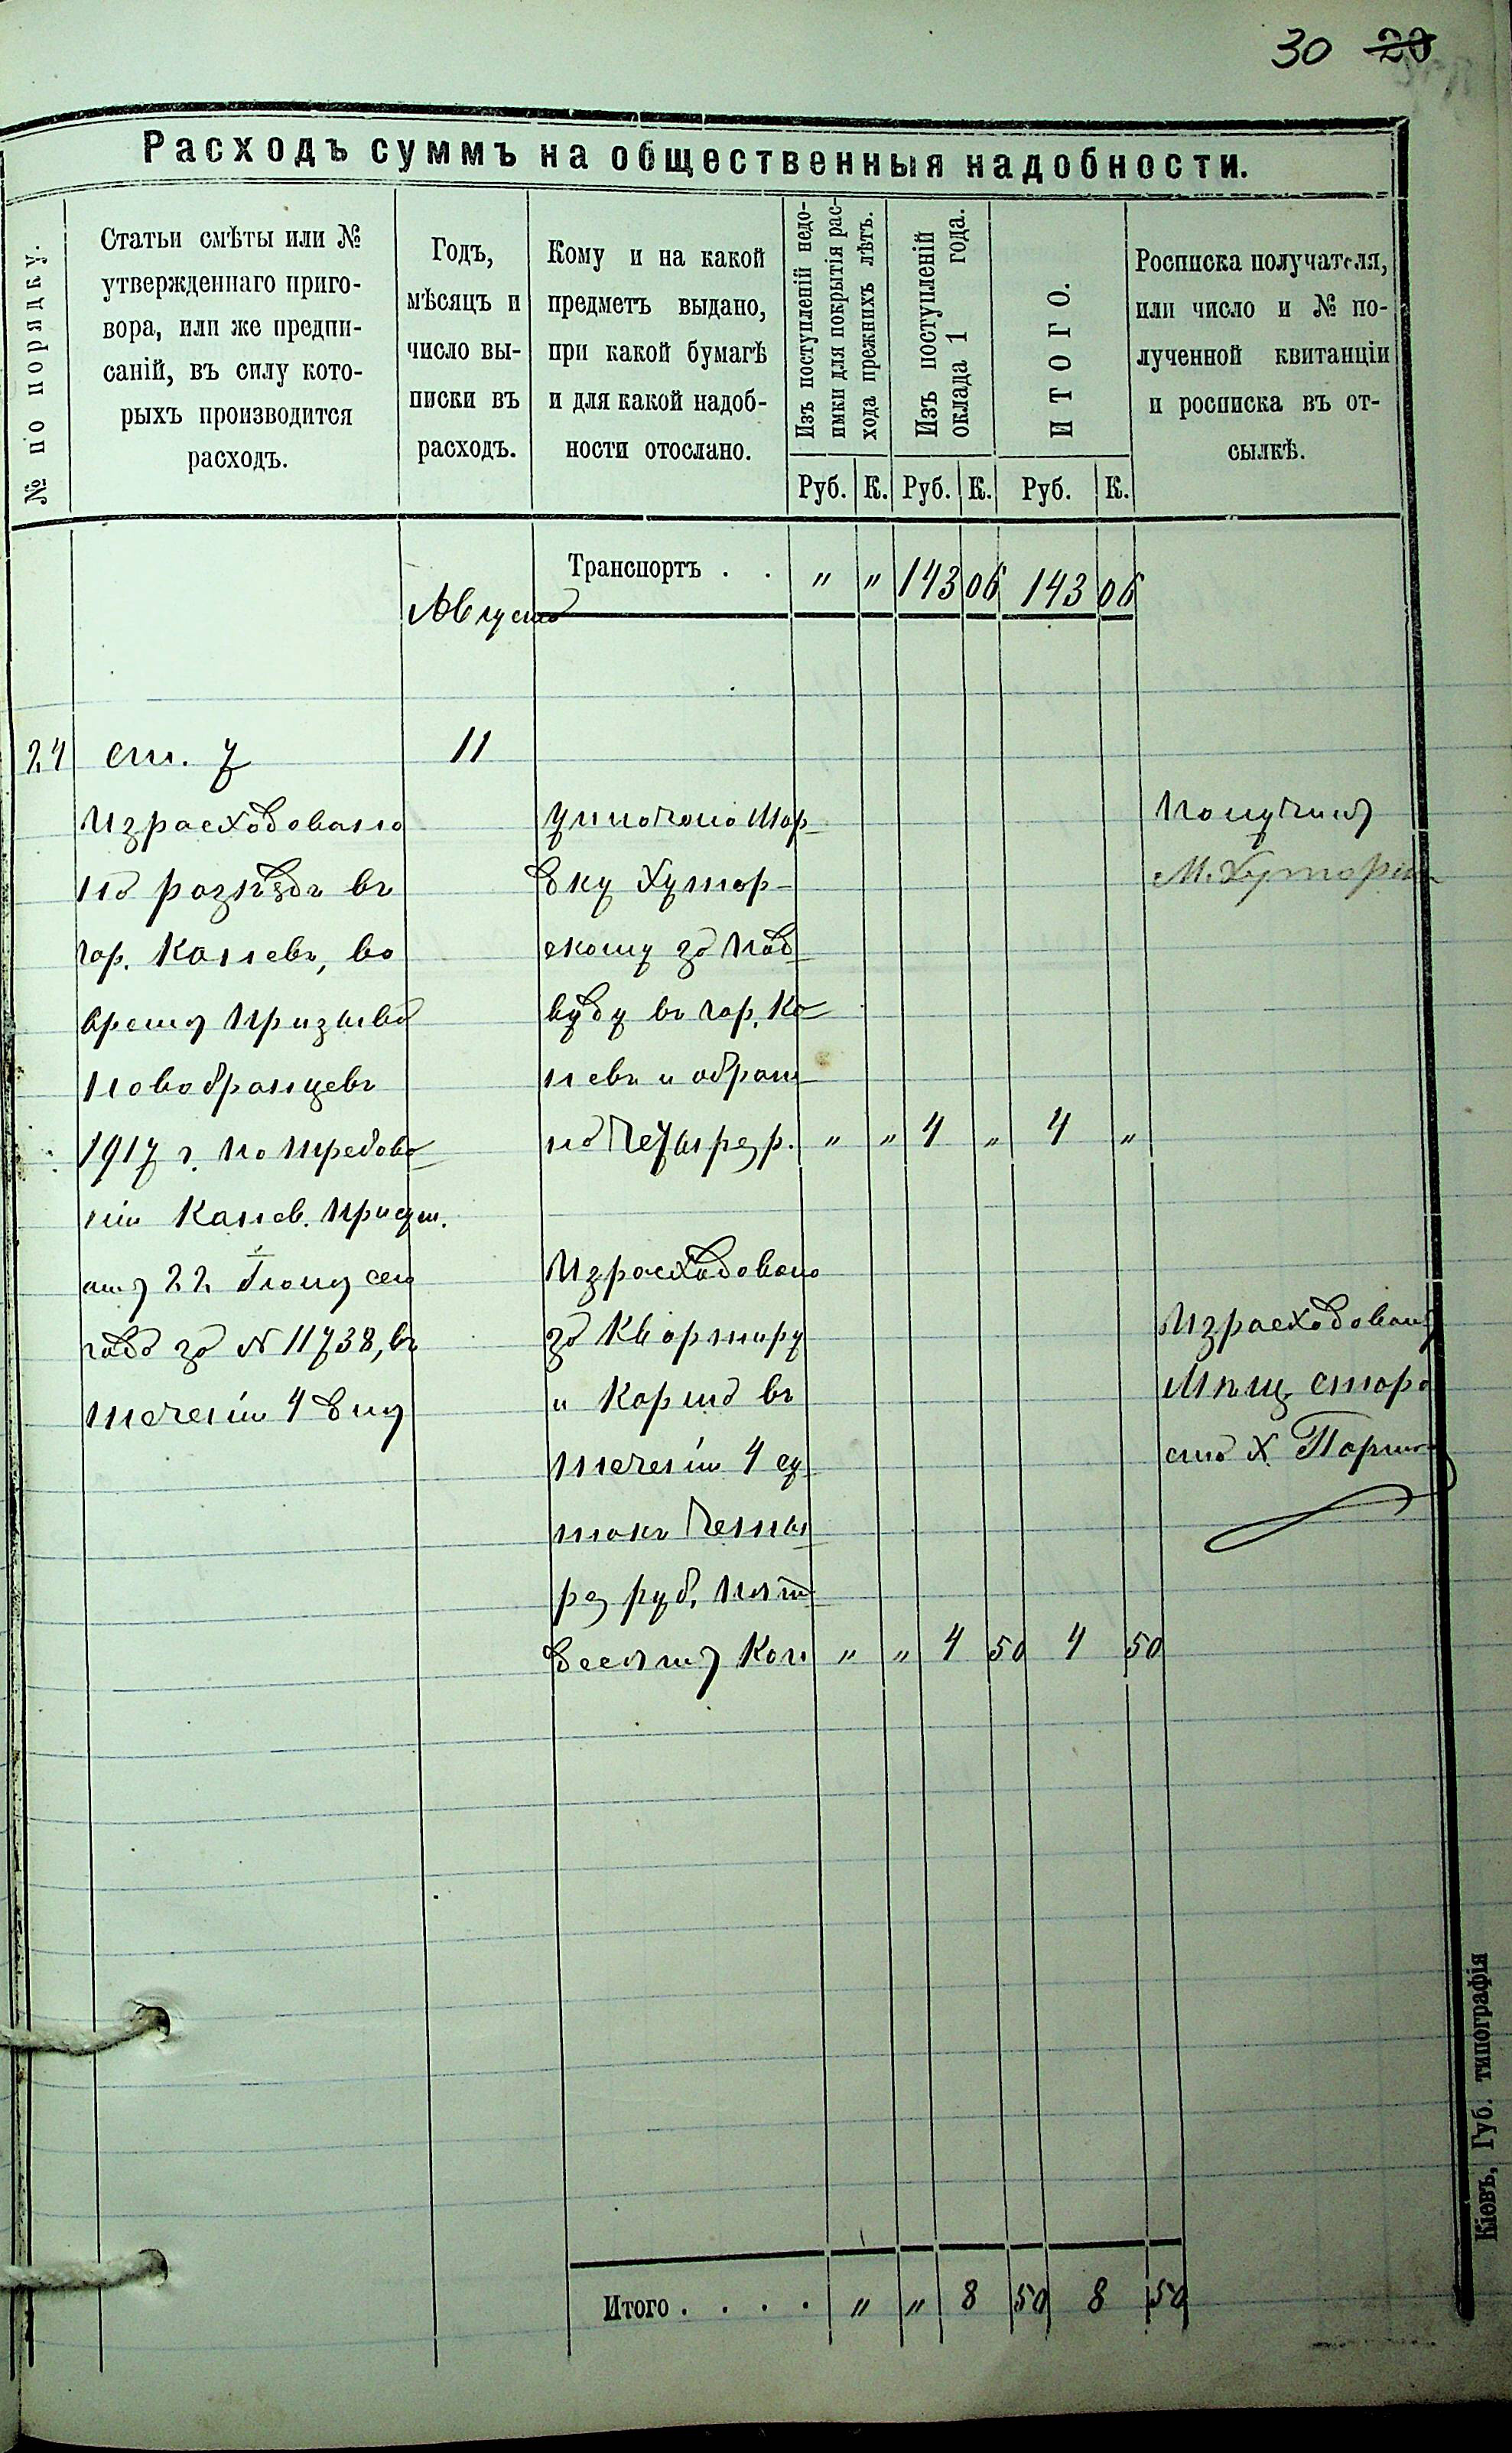 30 29
Расходъ суммъ на общественныя надобности.
№ по порядку.
Статьи смѣты или №
утвержденнаго приго-
вора, или же предпи-
саній, въ силу кото-
рыхъ производится
расходъ.
Годъ,
мѣсяцъ и
число вы-
писки въ
расходъ.
Кому и на какой
предметъ выдано,
при какой бумагѣ
и для какой надоб-
ности отослано.
Изъ поступленій недо-
имки для покрытія рас-
хода прежнихъ лѣтъ.
Изъ поступленій
оклада 1 года.
ИТОГО.
Росписка получателя,
или число и № по-
лученной квитанціи
и росписка въ от-
сылкѣ.
Руб. К. Руб. К. Руб. К.
Транспортъ . . " " 143 06 143 06
Августа
24 ст. 7 11
Израсходовано
на розъѣзды въ
гор. Каневъ, во
время призыва
новобранцевъ
1917 г. по требова-
нію Канев. присут.
отъ 22 Іюня сего
года за № 11738, въ
теченіи 4 дня
уплочено Мор-
дку Хутор-
скому за под-
вуду въ гор. Ка-
невъ и обрат-
но четыре р. " " 4 " 4 "
Получилъ
М. Хуторск
Израсходовано
за квартиру
и корма въ
теченіи 4 су-
токъ четы-
ре руб. пять-
десятъ коп. " " 4 50 4 50
Израсходовалъ
Мѣщ. старо
ста Х.
Итого . . . . " " 8 50 8 50
Кіевъ, Губ. типографія